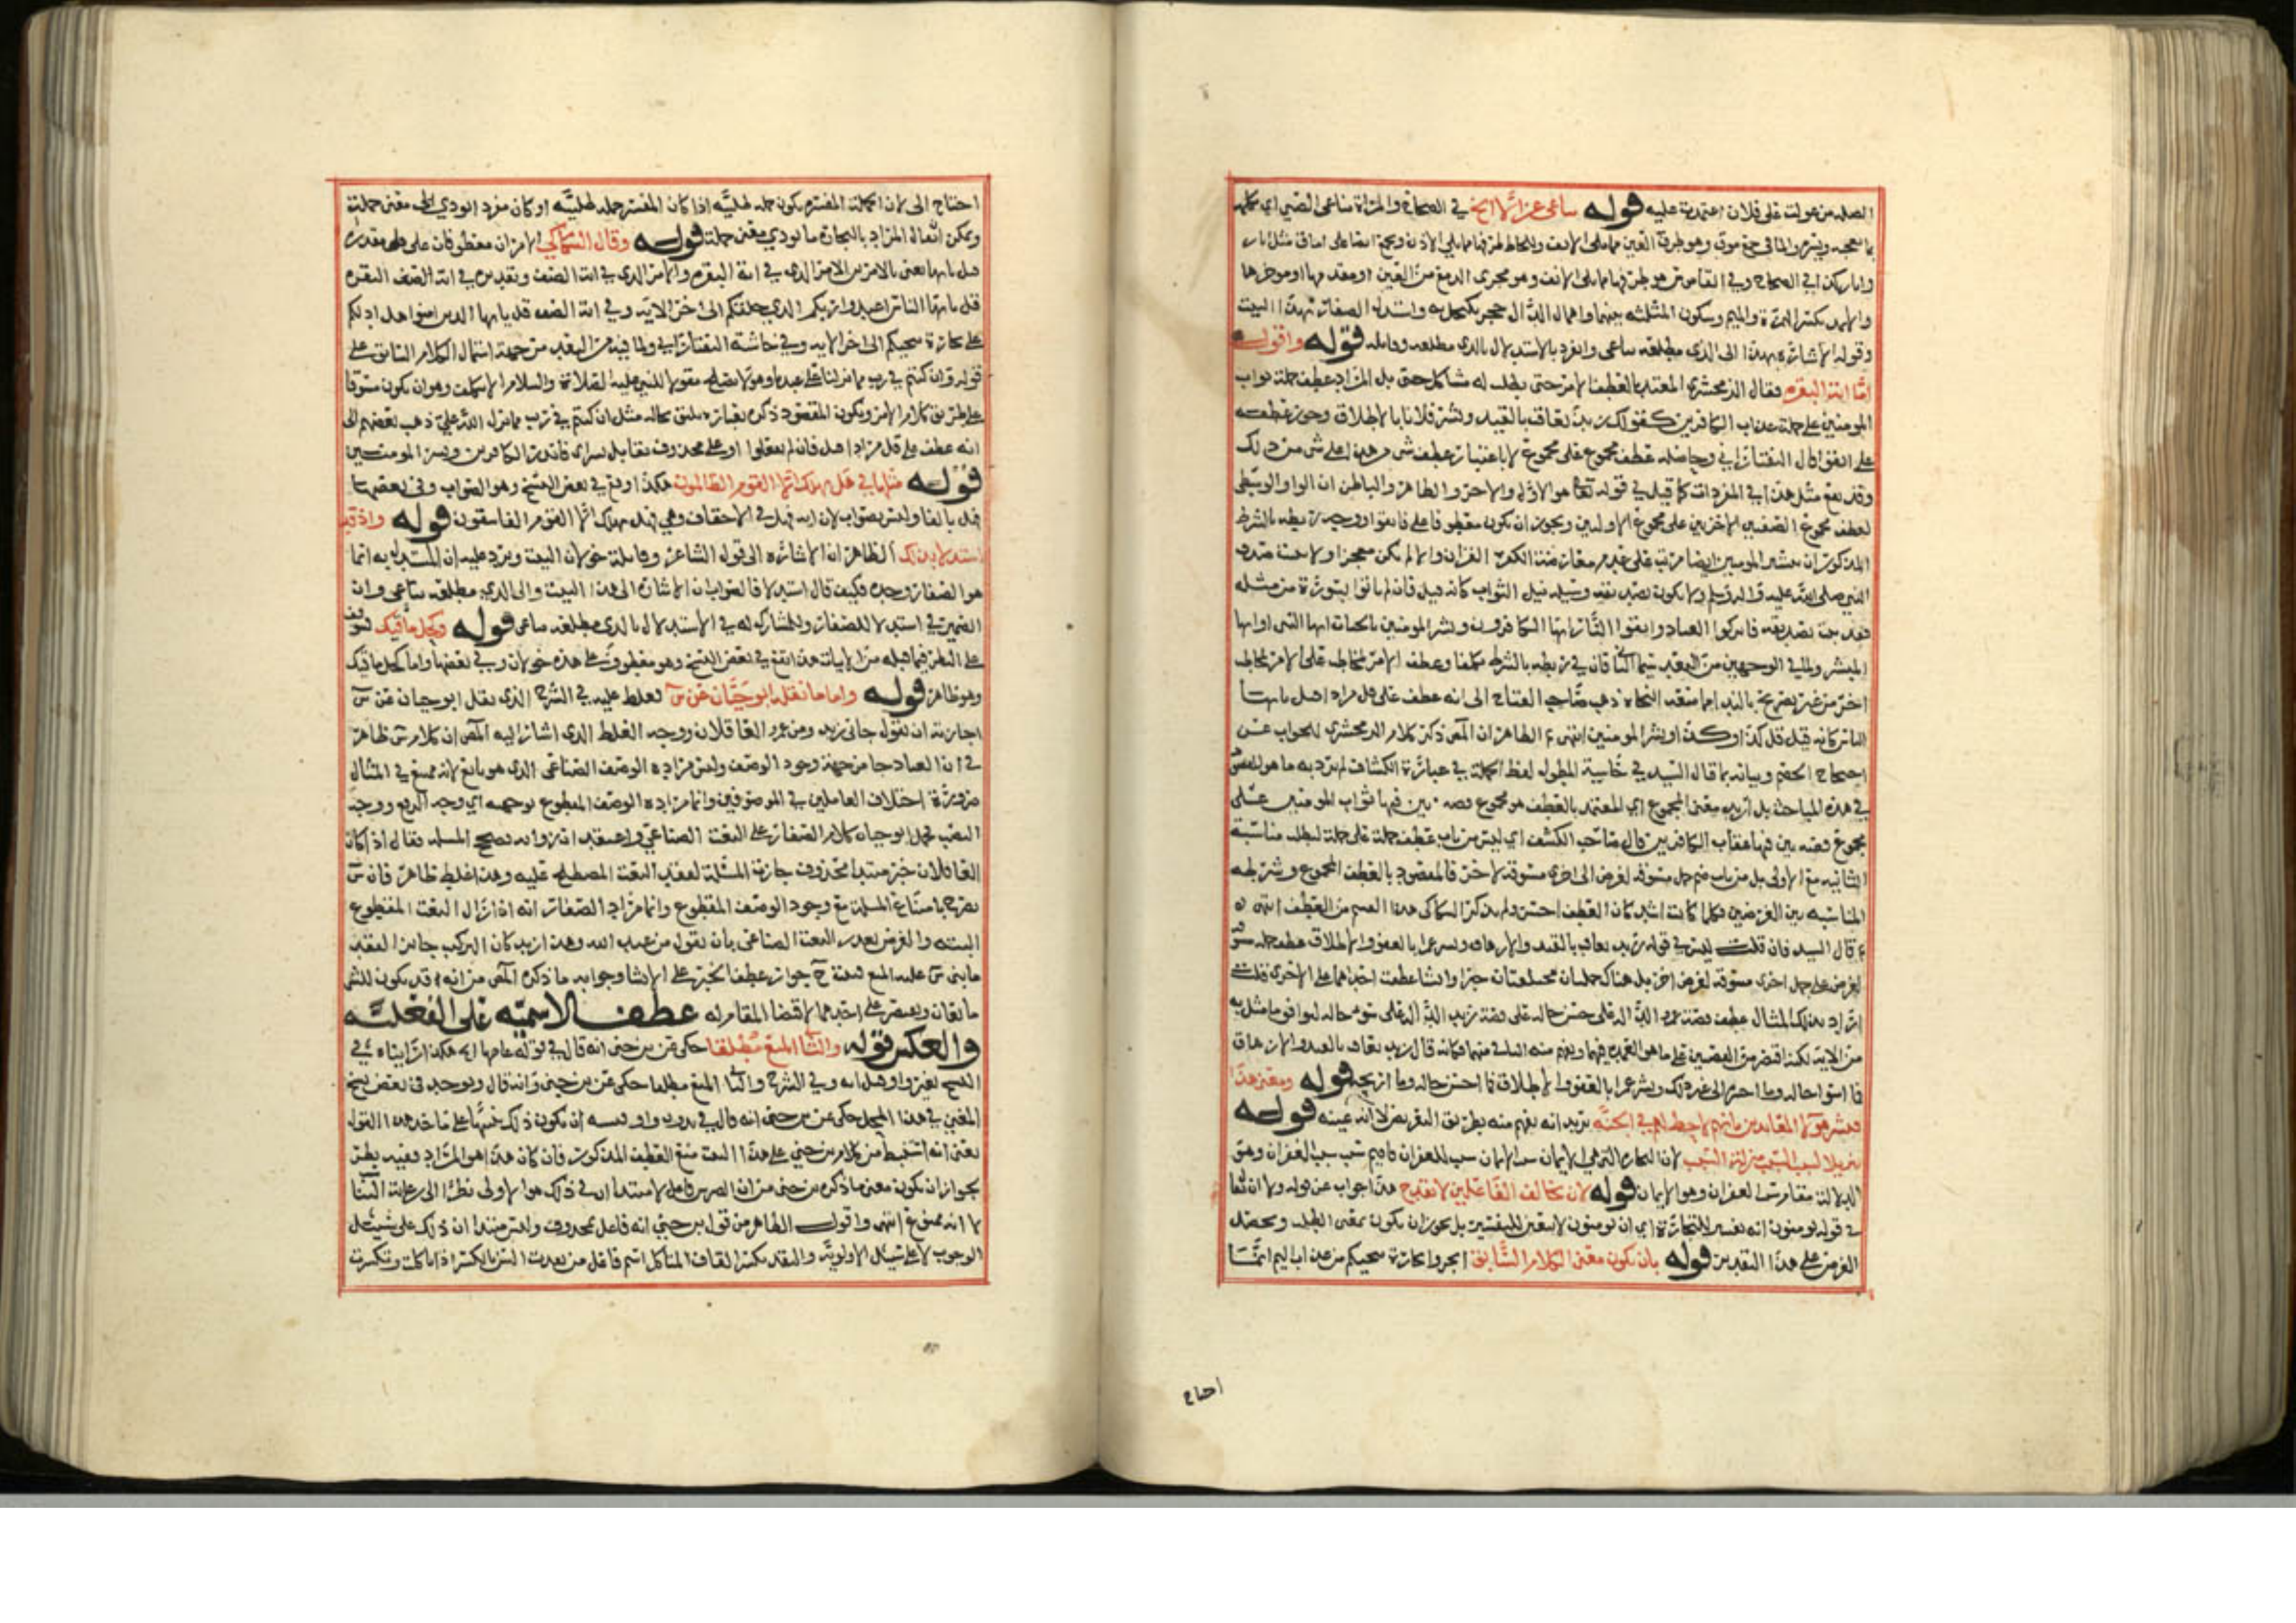 الصله من عولت على فلان اعتمدت عليه قوله يناغي غزالا الخ في الصحاح والمراة تناغي الصبي اي تكلمه
بما يعجبه ويسره والماقي جمع موق وهو طرف العين مما يلي الانف واللحاظ طرفها مما يلي الاذن ويجمع ايضا على اماق مثل ابار
وابار كذا في الصحاح وفي القاموس هو طرفها مما يلي الانف وهو مجرى الدمع من العين او مقدمها او موخرها
والاثمد بكسر الهمزة والميم وسكون المثلثه بينهما واهمال الدال حجر يكتحل به واستدل الصفار بهذا البيت
وقوله الاشارة بهذا الى الذي مطلعه يناغي وانفرد بالاستدلال بالذي مطلعه وقايله قوله واقول
اما اية البقره فقال الزمخشري المعتمد بالعطف الامر حتى يطلب له مشاكل حتى بل المراد عطف جملة ثواب
المومنين على جملة عذاب الكافرين كقولك زيد يعاقب بالقيد وبشر فلانا بالاطلاق وجوز عطفه
على اتقوا قال التفتازاني وحاصله عطف مجموع على مجموع لا باعتبار عطف شي من هذا على شي من ذلك
وقد يقع مثل هذا في المفردات كما قيل في قوله تعالى هو الاول والاخر والظاهر والباطن ان الواو الوسطى
لعطف مجموع الصفتين الاخريين على مجموع الاوليين ويجوز ان يكون معطوفا على فاتقوا ووجه ربطه بالشرط
المذكور ان تبشير المومنين ايضا مرتب على عدم معارضة الكفرة القران والا لم يكن معجزا ولا
النبي صلى الله عليه واله وسلم ولا يكون تصديقه وسيله نيل الثواب كانه قيل فان لم ياتوا بسورة من مثله
فقد صدقه فاتركوا العناد واتقوا النار ايها الكافرون وبشر المومنين بالجنات ايها النبي او ايها
المبشر ولما في الوجهين من البعد سيما الثاني فان في ربطه بالشرط تكلفا وعطف الامر لمخاطب على الامر لمخاطب
اخر من غير تصريح بالندا مما منعه النحاة ذهب صاحب المفتاح الى انه عطف على قل مرادا قبل يايها
الناس كانه قيل قل كذا وكذا وبشر المومنين انتهى الظاهر ان المص ذكر كلام الزمخشري للجواب عن
احتجاج الخصم وبيانه ما قال السيد في حاشية المطول لفظ الجملة في عبارة الكشاف لم يرد به ما هو المعنى
في هذه المباحث بل اريد معنى المجموع اي المعتمد بالعطف هو مجموع قصه بين فيها ثواب المومنين على
مجموع قصه بين فيها عقاب الكافرين قال صاحب الكشف اي ليس من باب عطف جملة على جملة لطلب مناسبة
الثانيه مع الاولى بل من باب ضم جمل مسوقه لغرض الى اخرى مسوقة لاخر فالمقصود بالعطف المجموع وشرطه
المناسبه بين الغرضين فكلما كانت اشد كان العطف احسن ولم يذكر السكاكي هذا القسم من العطف انتهى
قال السيد فان قلت ليس في قوله زيد يعاقب بالقيد والارهاق وبشر عمرا بالعفو والاطلاق عطف جمل مسوقة
لغرض على جمل اخرى مسوقة لغرض اخر بل هناك جملتان مختلفتان خبرا وانشا عطفت احداهما على الاخرى قلت
اراد بذلك المثال عطف قصة عمرو الدالة على حسن حاله على قصة زيد الدالة على سوء حاله ليوافق ما مثل به
من الاية لكنه اقتصر من القصتين على ما هو العمدة فيهما ويفهم منه الباقي منهما فكانه قال زيد يعاقب بالقيد والارهاق
فما اسوا حاله وما اخسره الى غير ذلك وبشر عمرا بالعفو والاطلاق فما احسن حاله وما اربحه قوله ومعنى هذا
فبشر هولا المعاندين بانهم لا حظ لهم في الجنة يريد انه يفهم منه بطريق التعريض لا انه عينه قوله
تنزيلا لسبب السبب منزلة السبب لان التجارة التي هي الايمان سبب للغفران
الدلالة مقام سبب الغفران وهو الايمان قوله لان تخالف الفاعلين لا يقدح هذا جواب عن قوله ولا ان
في قوله تومنون انه تفسير للتجارة اي ان تومنون لا يتعين للتفسير بل يجوز ان يكون بمعنى الطلب ويحصل
الغرض على هذا التقدير قوله بان يكون معنى الكلام السابق اتجروا تجارة تنجيكم من عذاب اليم انما
احتاج
احتاج الى لان الجملة المفسره يكون جمله طلبية اذا كان المفسر جمله طلبيه او كان مفردا يودي معنى جملة
ويمكن ان يقال المراد بالتجارة ما يودي معنى جملة قوله وقال السكاكي الامران معطوفان على قل مقدرة
قبل يايها يعني بالامرين الامر الذي في اية البقره والامر الذي في اية الصف وتقديره في اية الصف البقره
قل يايها الناس اعبدوا ربكم الذي خلقكم الى اخر الاية وفي اية الصف قل يايها الذين امنوا هل ادلكم
على تجارة تنجيكم الى اخر الاية وفي حاشية التفتازاني ولما فيه من البعد من جهة اشتمال الكلام السابق على
قوله وان كنتم في ريب مما نزلنا على عبدنا وهو لا يصلح مقولا للنبي عليه الصلاة والسلام الا بتكلف وهو ان يكون مسوقا
على طريق كلام الامر ويكون المقصود ذكره بعبارة يليق بحاله مثل ان كنتم في ريب مما نزل الله علي ذهب بعضهم الى
انه عطف على قل مرادا قبل فان لم تفعلوا او على محذوف يقابل بشر اي فانذر الكافرين وبشر المومنين
قوله مثلها في هل يهلك الا القوم الظالمون هكذا وقع في بعض النسخ وهو الصواب وفي بعضها
فهل بالفا وليس بصواب لان اية فهل في الاحقاف وهي فهل يهلك الا القوم الفاسقون قوله واذ قد
استدلا بذلك الظاهر ان الاشاره الى قول الشاعر وقايلة خولان البيت ويرد عليه ان المستدل به انما
هو الصفار وحده فكيف قال استدلا فالصواب ان الاشارة الى هذا البيت والى الذي مطلعه تناغي وان
الضمير في استدلا للصفار وللمشارك له في الاستدلال بالذي مطلعه تناغي قوله وكحل ماقيك
على النظر فيما قبله من الابيات هذا يقع في بعض النسخ وهو معطوف على هذه خولان وفي بعضها واما كحل ماقيك
وهو ظاهر قوله واما ما نقله ابو حيان عن س فغلط عليه في الشرح الذي نقل ابو حيان عن س
اجازته ان تقول جاني زيد ومن عمرو العاقلان ووجه الغلط الذي اشار اليه المص ان كلام س ظاهر
في ان الفساد جا من جهة وجود الوصف وليس مراده الوصف الصناعي الذي هو تابع لانه ممتنع في المثال
ضرورة اختلاف العاملين في الموصوفين وانما مراده الوصف المقطوع بوجهيه اي وجه الرفع ووجه
النصب فحمل ابو حيان كلام الصفار على النعت الصناعي واعتقد انه زواله يصحح المسله فقال اذا كان
العاقلان خبر مبتدا محذوف جازت المسئلة لفقد النعت المصطلح عليه وهذا غلط ظاهر فان س
يصرح بامتناع المسلة مع وجود الوصف المقطوع وانما مراد الصفار انه اذا زال النعت المقطوع
البته والغرض تعدد النعت الصناعي بان تقول من عبد الله وهذا زيد كان التركيب جايزا لفقد
ما بنى س عليه المنع جواز عطف الخبر على الانشا وجوابه ما ذكره المص من انه قد يكون للشي
مانعان ويقتصر على احدهما لاقتضا المقام له عطف الاسمية على الفعلية
وبالعكس قوله والثاني المنع مطلقا حكي عن بن جني انه قال في قوله هكذا رايناه في
النسخ بغير واو قبل انه وفي الشرح والثاني المنع مطلقا حكي عن بن جني وانه قال ويوجد في بعض نسخ
المغني في هذا المحل حكي عن بن جني انه قال في بدون واو ان يكون ذلك تنبيها على ماخذ هذا القول
يعني انه استنبط من كلام بن جني على هذا البيت منع العطف المذكور فان كان هذا هو المراد ففيه نظر
لجواز ان يكون معنى ما ذكره بن جني من ان الضرس فاعل لا مبتدا ان في ذلك هو الاولى نظرا الى رعاية التناسب
لا انه ممتنع انتهى واقول الظاهر من قول بن جني انه فاعل بمحذوف وليس مبتدا ان ذلك على سبيل
الوجوب لا على سبيل الاولوية والنقد بكسر القاف المتاكل اسم فاعل من نقدت السن بالكسر اذا تاكلت وتكسرت